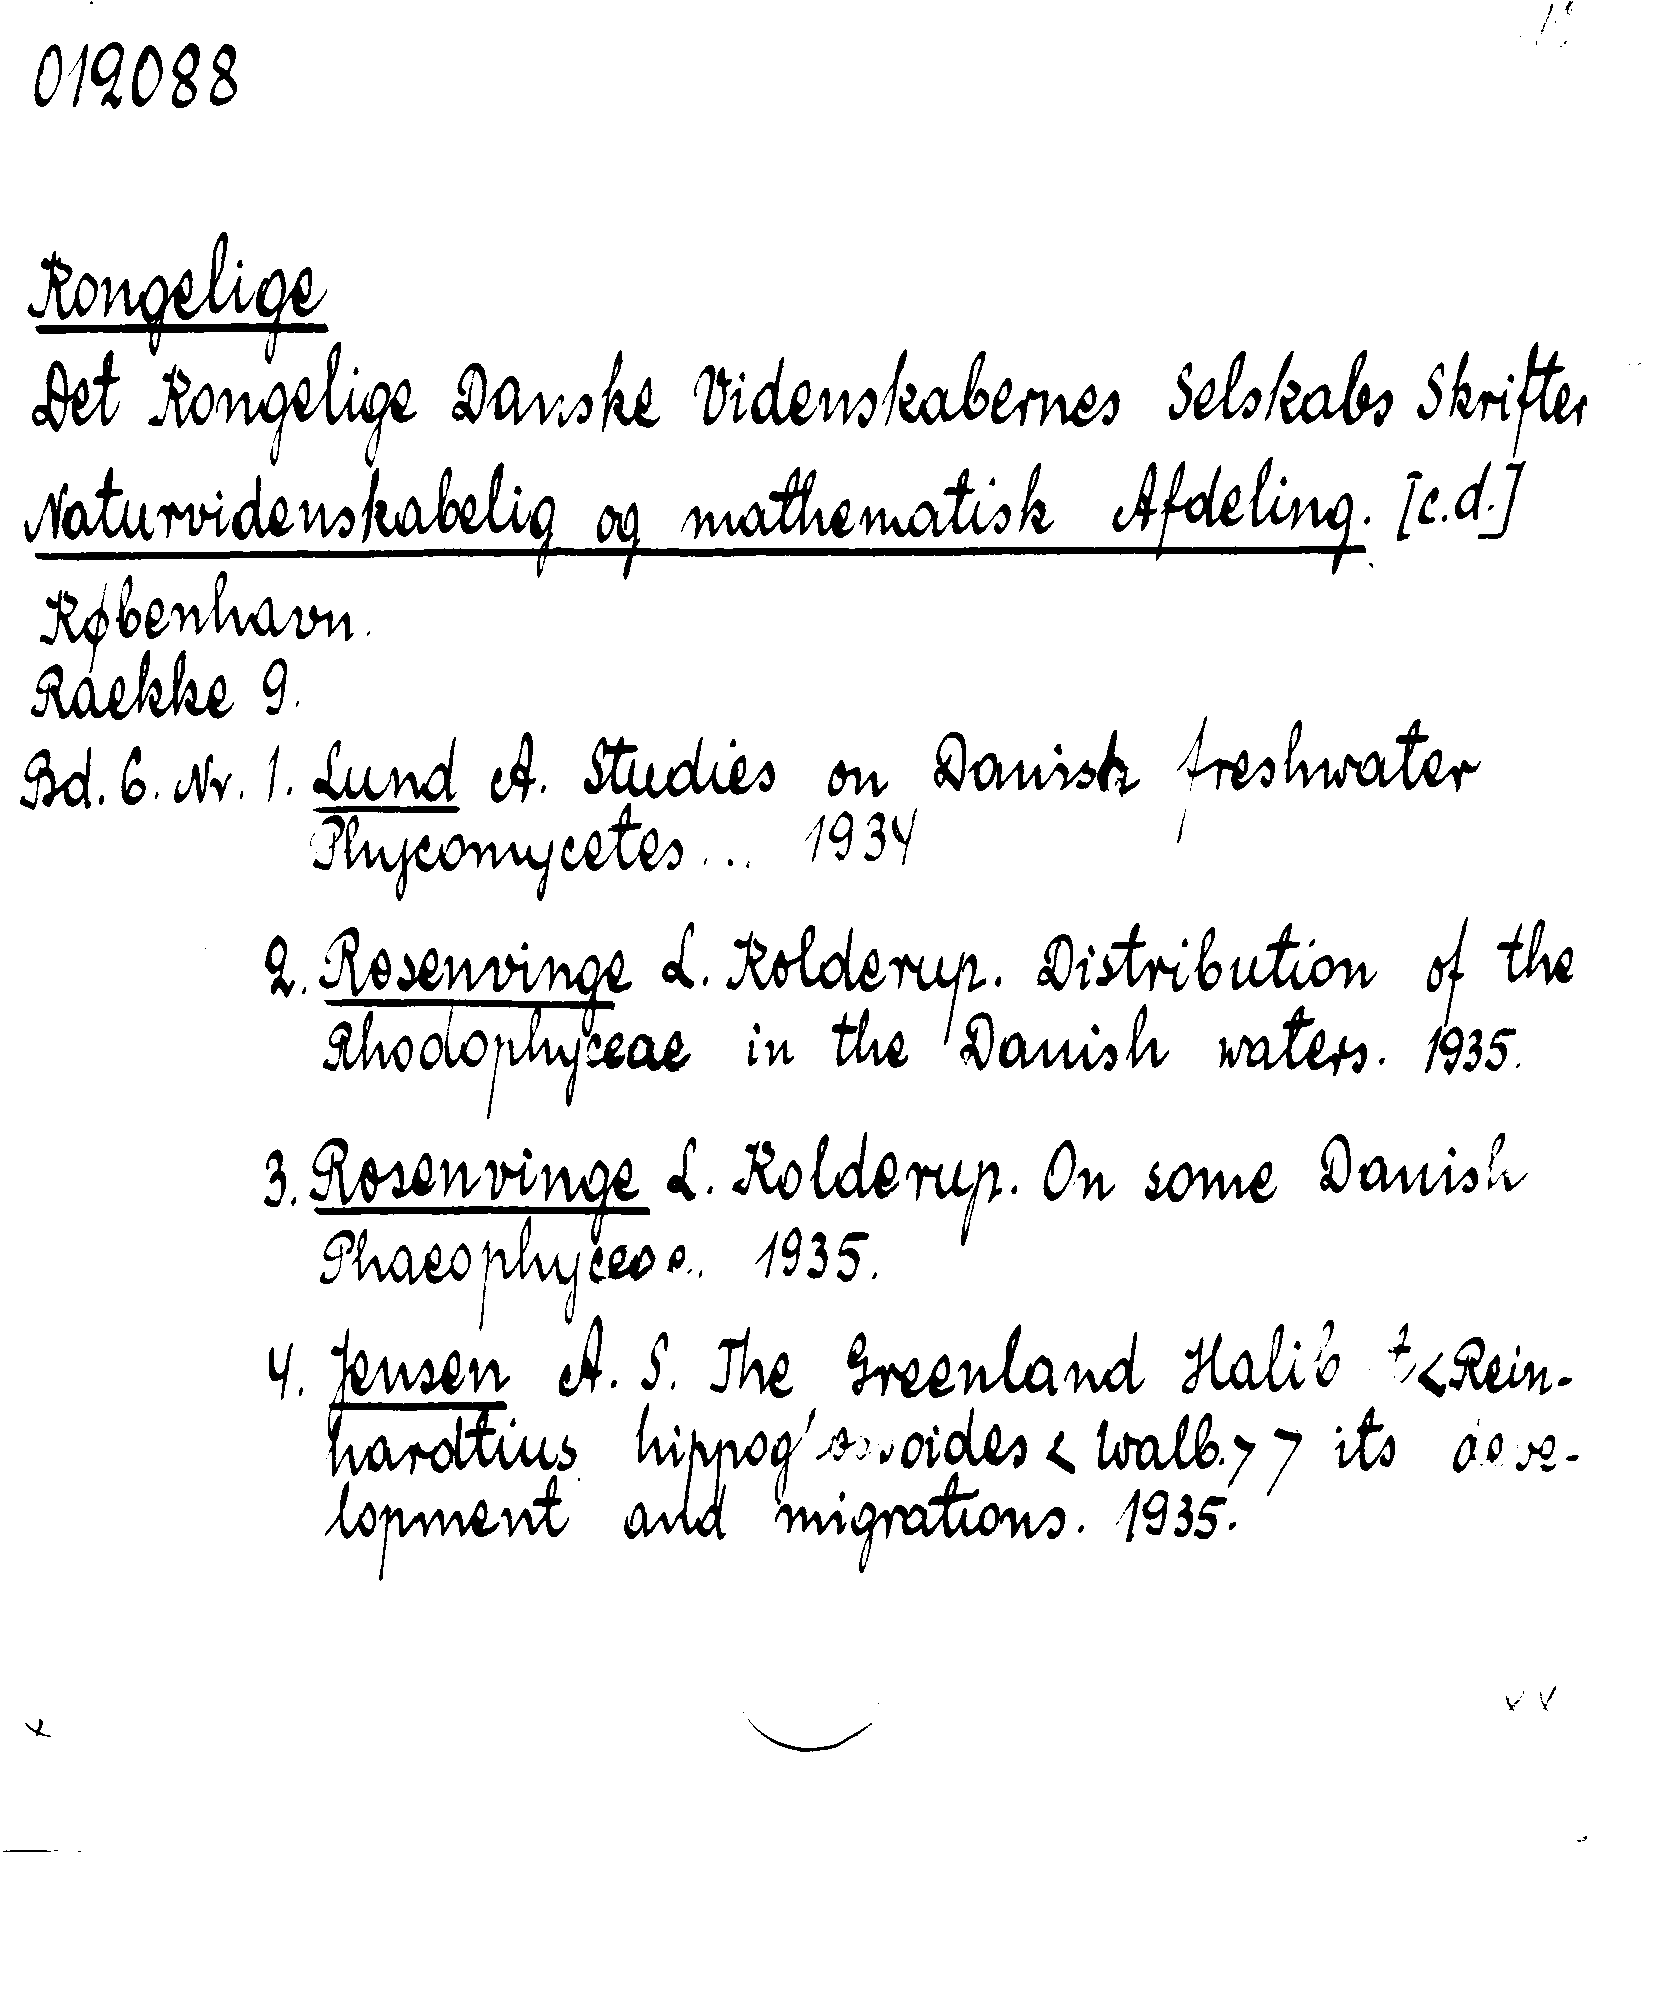 012088
Kongelige
Det Kongelige Danske Videnskabernes Selskabs Skrifter
Naturvidenskabelig og mathematisk Afdeling. [c.d.]
København.
Raekke 9.
Bd. 6. Nr. 1. Lund A. Studies on Danish freshwater
Phycomycetes... 1934
2. Rosenvinge L. Kolderup. Distribution of the
Rhodophyceae in the Danish waters. 1935.
3. Rosenvinge L. Kolderup. On some Danish
Phaeophyceae.. 1935.
4. Jensen A. S. The Greenland Halibut <Rein-
hardtius hippoglossoides < Walb.> > its deve-
lopment and migrations. 1935.